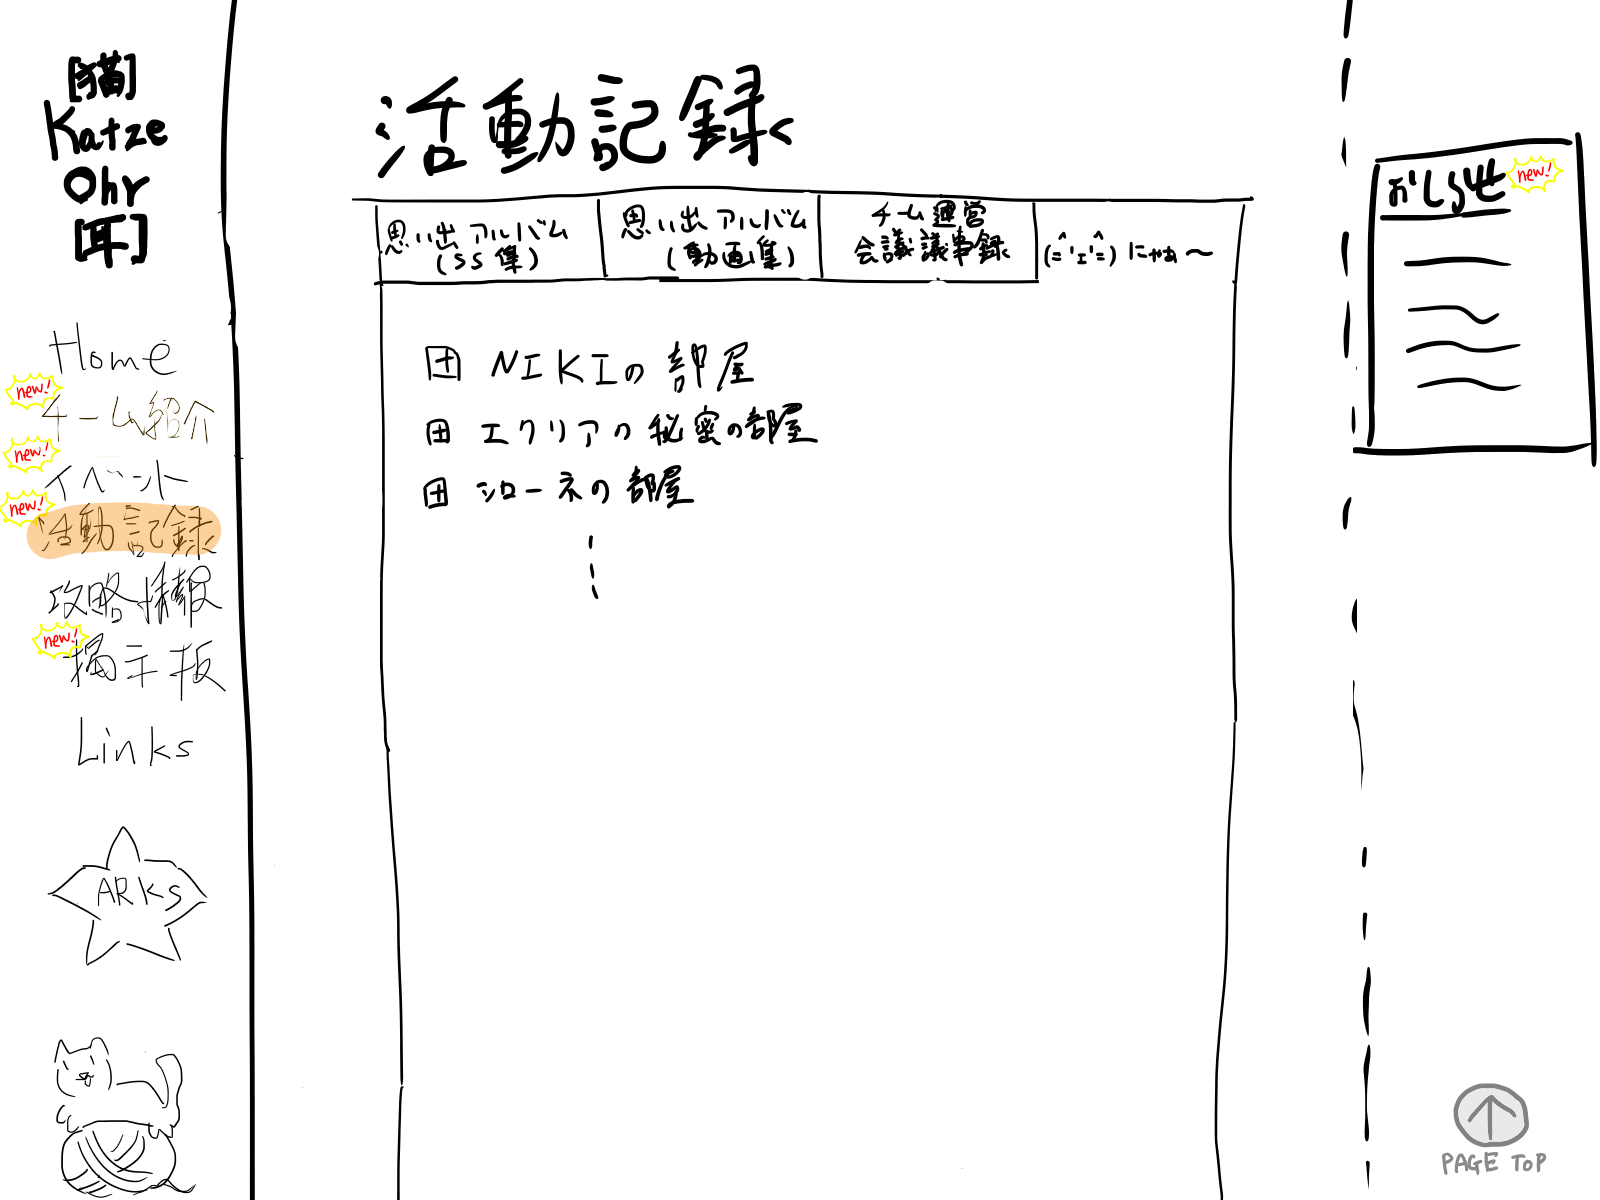 [猫]
Katze
Ohr
[耳]
Home
new!
チーム紹介
new!
イベント
new!
活動記録
攻略情報
new!
掲示板
Links
ARKS
活動記録
思い出アルバム
(SS集)
思い出アルバム
(動画集)
チーム運営
会議議事録
(=^'ェ'^=) にゃぁ〜
NIKIの部屋
エクリアの秘密の部屋
シローネの部屋
おしらせ new!
PAGE TOP